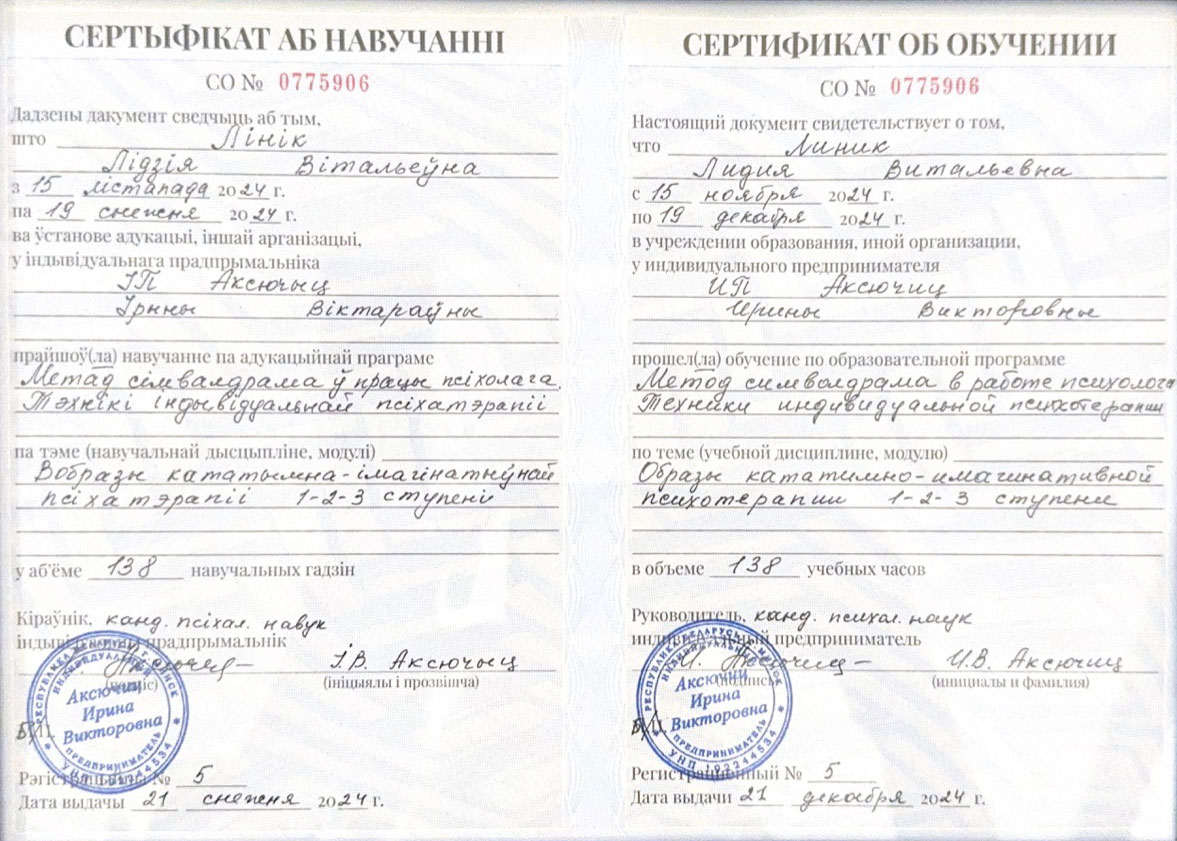 СЕРТЫФІКАТ АБ НАВУЧАННІ
СО № 0775906
Дадзены дакумент сведчыць аб тым,
што Лінік
Лідзія Вітальеўна
з 15 лістапада 2024 г.
па 19 снежня 2024 г.
ва ўстанове адукацыі, іншай арганізацыі,
у індывідуальнага прадпрымальніка
ІП Аксючыц
Ірыны Віктараўны
прайшоў(ла) навучанне па адукацыйнай праграме
Метад сімвалдрама ў працы псіхолага.
Тэхнікі індывідуальнай псіхатэрапіі
па тэме (навучальнай дысцыпліне, модулі)
Вобразы кататымна-імагінатыўнай
псіхатэрапіі 1-2-3 ступені
у аб'ёме 138 навучальных гадзін
Кіраўнік, канд. псіхал. навук
прадпрымальнік
І.В. Аксючыц
(ініцыялы і прозвішча)
Аксючиц
Ирина
Викторовна
ПРЕДПРИНИМАТЕЛЬ
Рэгістрацыйны № 5
Дата выдачы 21 снежня 2024 г.
СЕРТИФИКАТ ОБ ОБУЧЕНИИ
СО № 0775906
Настоящий документ свидетельствует о том,
что Линик
Лидия Витальевна
с 15 ноября 2024 г.
по 19 декабря 2024 г.
в учреждении образования, иной организации,
у индивидуального предпринимателя
ИП Аксючиц
Ирины Викторовны
прошел(ла) обучение по образовательной программе
Метод символдрама в работе психолога
Техники индивидуальной психотерапии
по теме (учебной дисциплине, модулю)
Образы кататимно-имагинативной
психотерапии 1-2-3 ступени
в объеме 138 учебных часов
Руководитель, канд. психол. наук
индивидуальный предприниматель
И.В. Аксючиц
(подпись) (инициалы и фамилия)
Аксючиц
Ирина
Викторовна
ПРЕДПРИНИМАТЕЛЬ
УНП 192244534
Регистрационный № 5
Дата выдачи 21 декабря 2024 г.